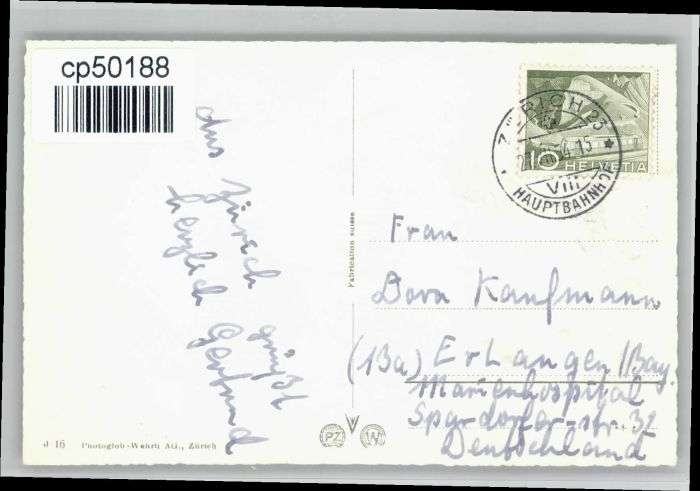 cp50188
Aus Zürich grüßt
herzlich Gertrud
Fabrication suisse
ZÜRICH 23
VIII
HAUPTBAHNHOF
10 HELVETIA
Frau
Dora Kaufmann
(13a) Erlangen/Bay.
Marienhospital
Spardorfer-str. 32
Deutschland
J 16 Photoglob-Wehrli AG., Zürich
PZ W